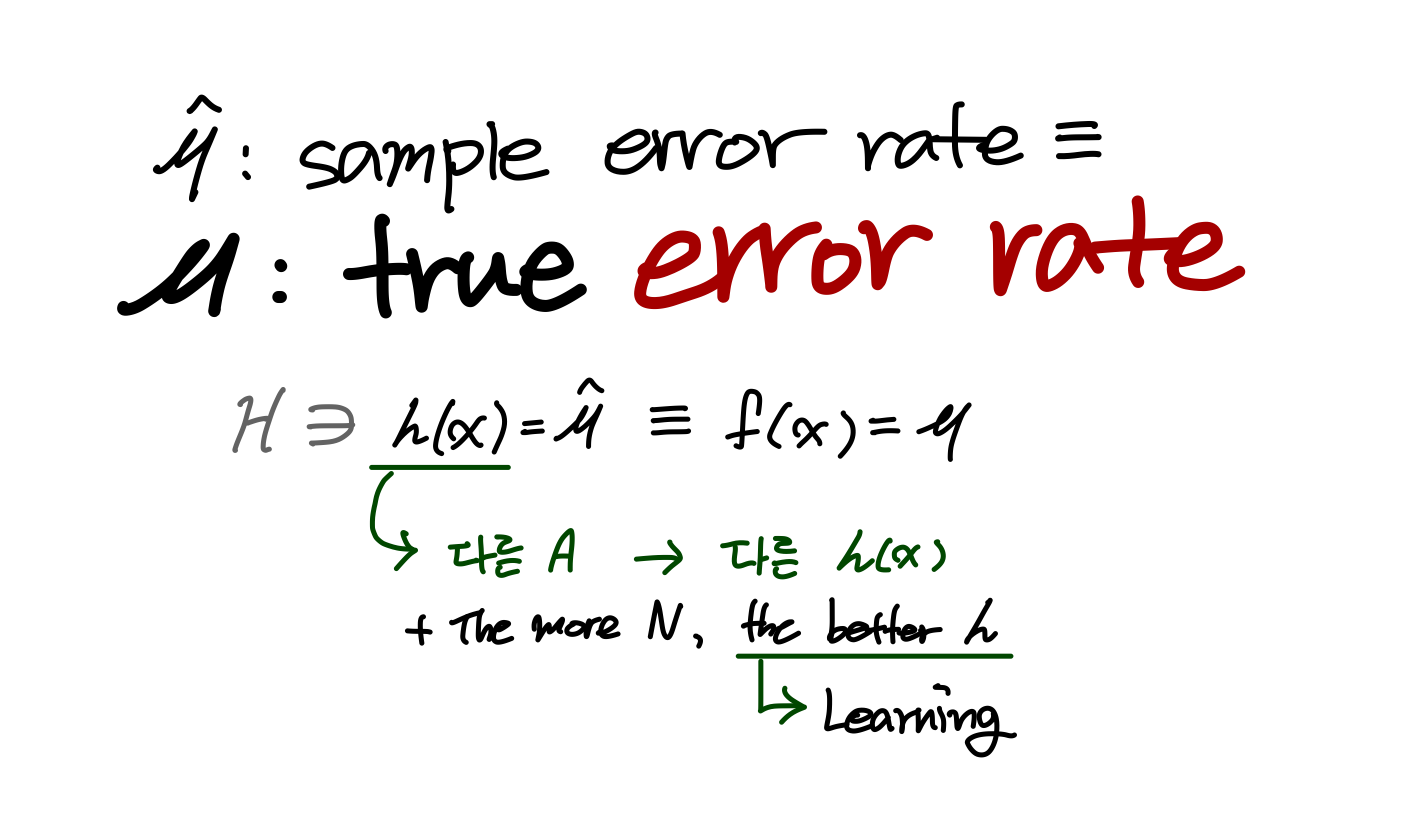 μ̂ : sample error rate ≡
μ : true error rate
H ∋ h(x) = μ̂ ≡ f(x) = μ
다른 A → 다른 h(x)
+ The more N, the better h
Learning